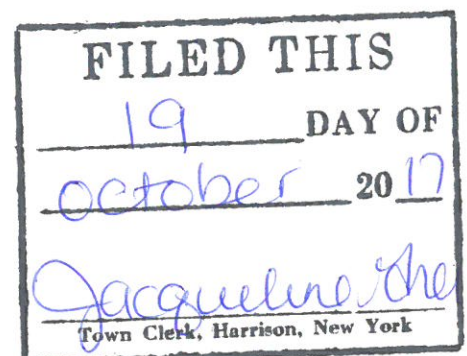 FILED THIS
19 DAY OF
October 20 17
Jacqueline
Town Clerk, Harrison, New York